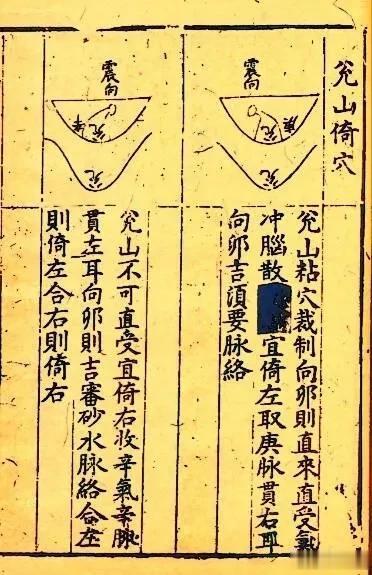 兊山倚穴
震向
庚
兊
兊
兊山粘穴裁制向卯則直來直受氣
冲腦散宜倚左取庚脉貫右耳
向卯吉須要脉絡
震向
辛
兊
兊
兊山不可直受宜倚右收辛氣辛脉
貫左耳向卯則吉審砂水脉絡合左
則倚左合右則倚右